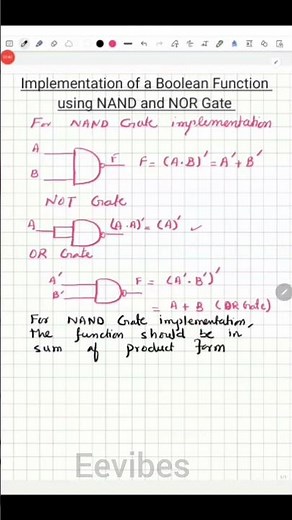 Implementation of a Boolean Function
using NAND and NOR Gate
For NAND Gate implementation
A
B
F
F = (A.B)' = A' + B'
NOT Gate
A
(A.A)' = (A)' ✓
OR Gate
A'
B'
F = (A'.B')'
= A + B (OR Gate)
For NAND Gate implementation,
the function should be in
sum of product form
Eevibes